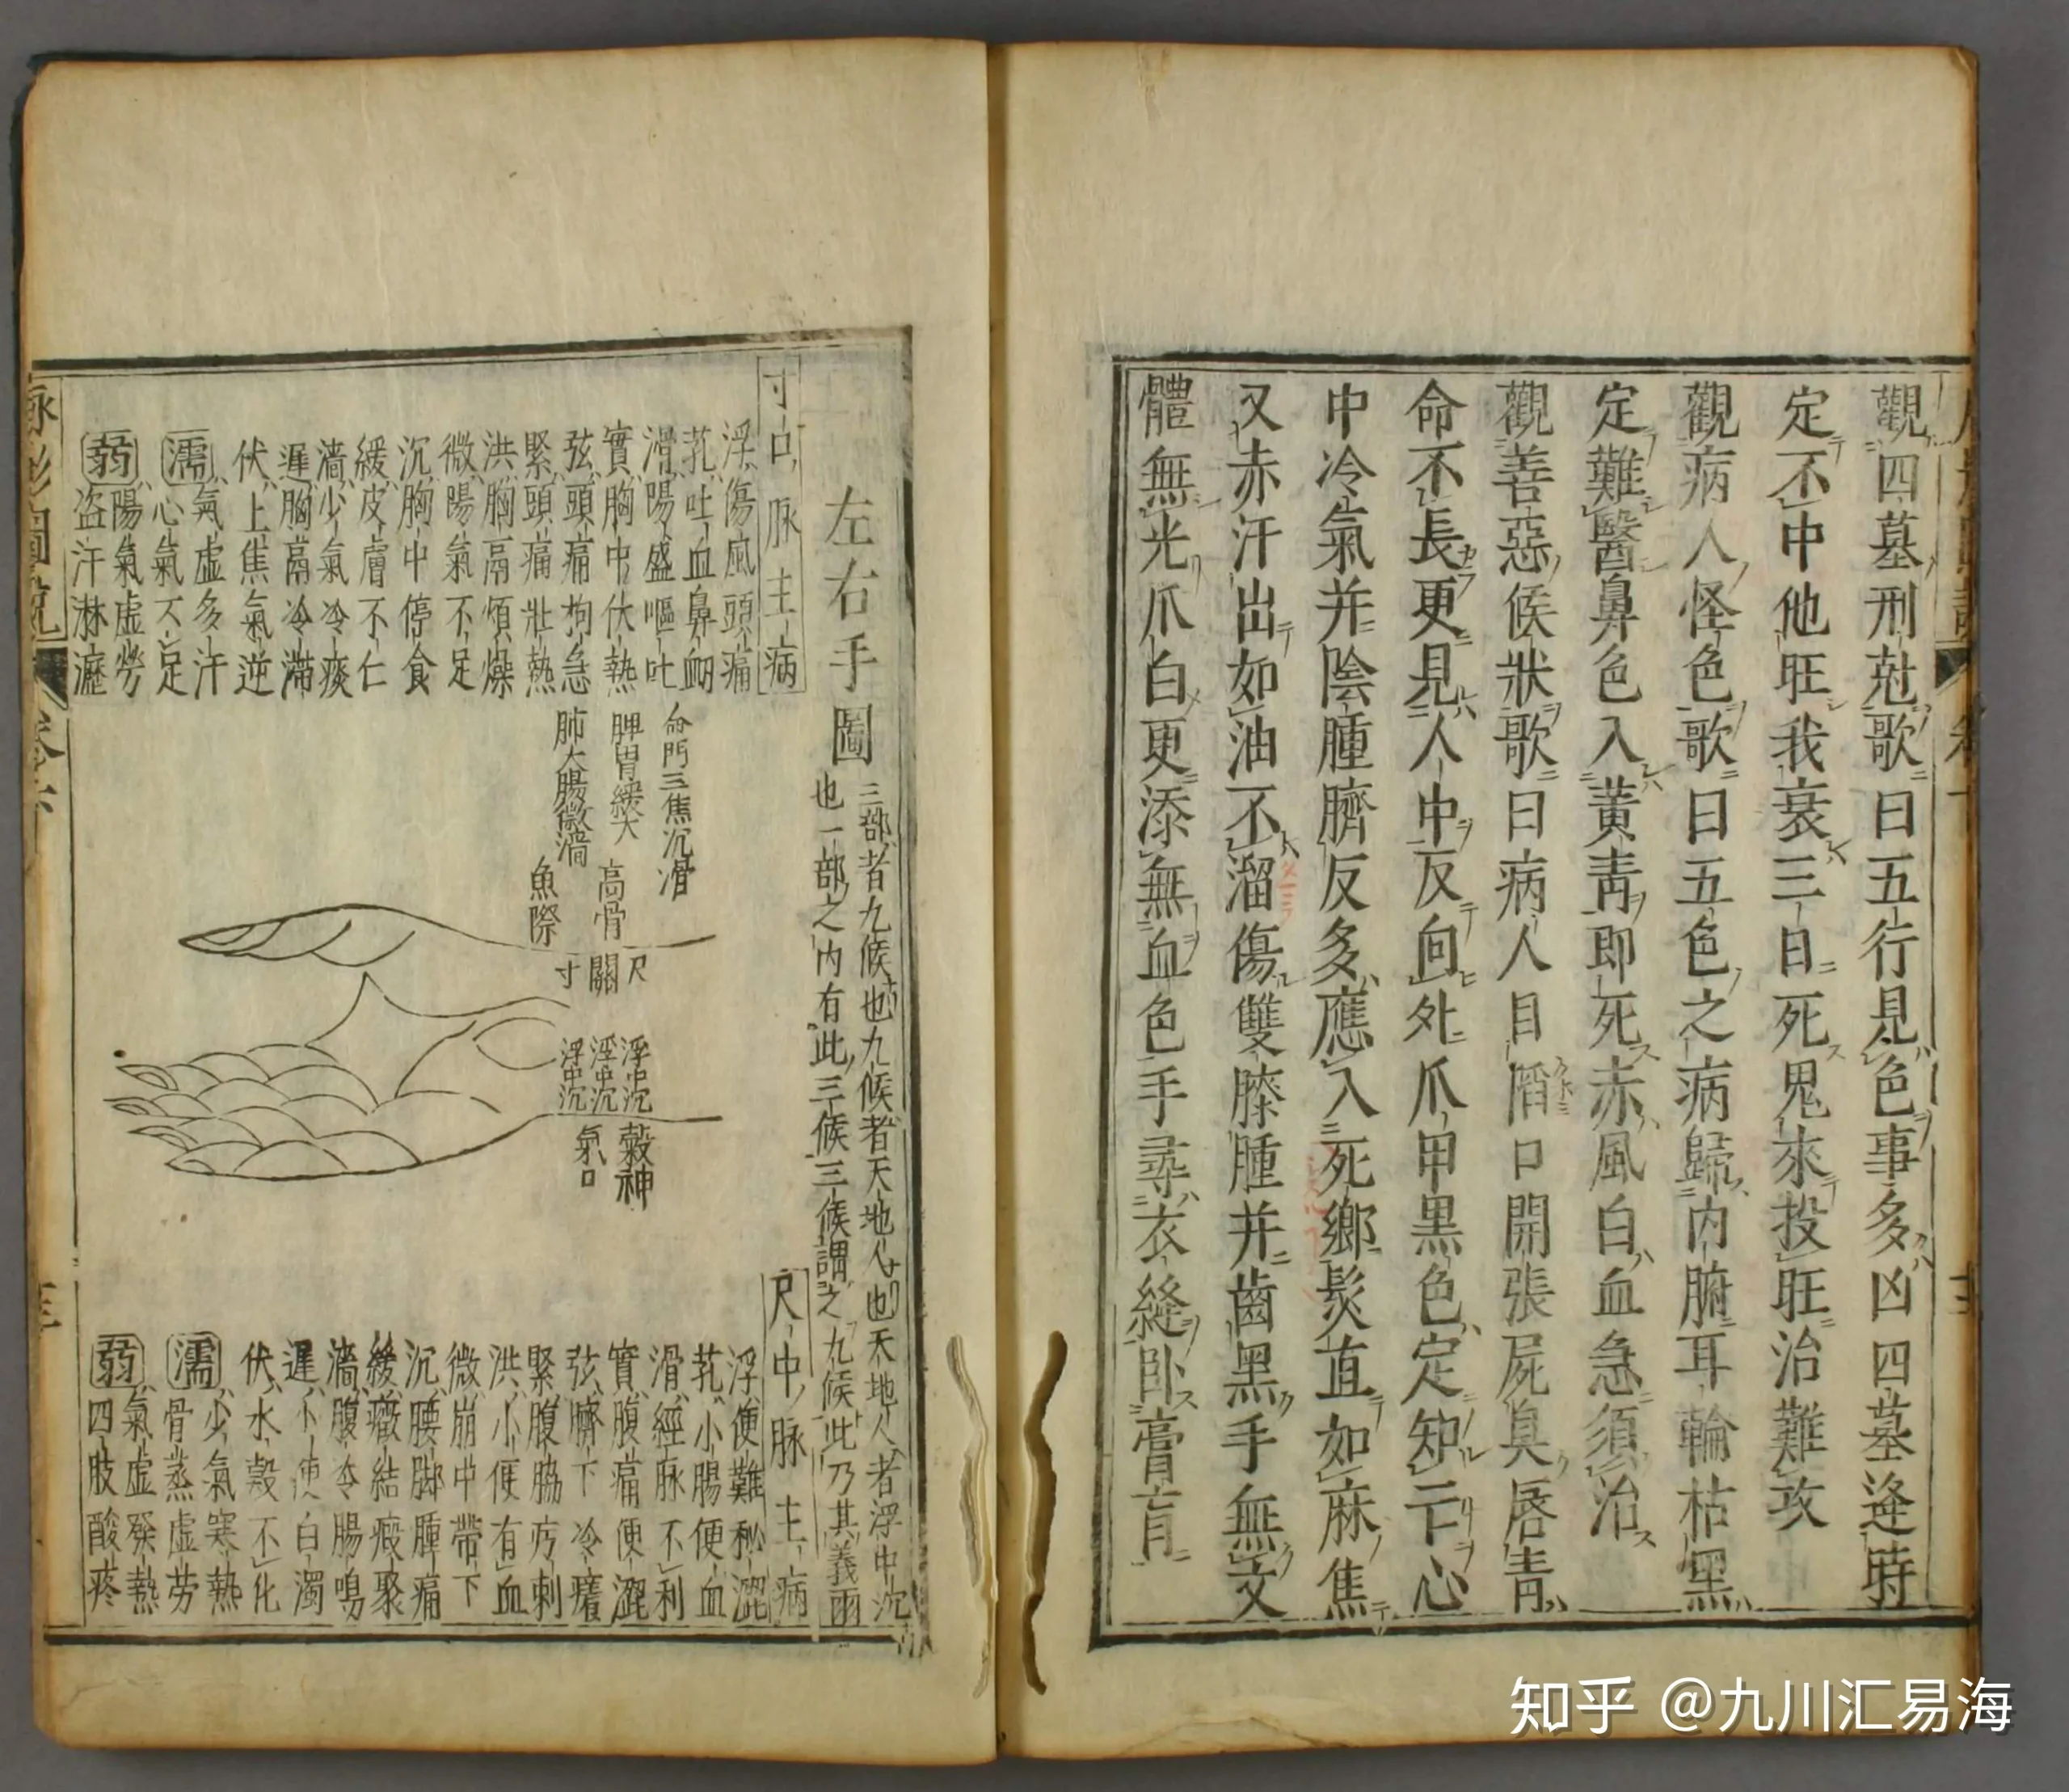 觀四墓刑尅歌曰五行見色事多凶四墓逢時
定不中他旺我衰三日死鬼來投旺治難攻
觀病人怪色歌曰五色之病歸内腑耳輪枯黑
定難醫鼻色入黃靑即死赤風白血急須治
觀善惡候狀歌曰病人目陷口開張屍臭唇青
命不長更見人中反向外爪甲黒色定知亡心
中冷氣并陰腫臍反多應入死鄉髮直如麻焦
又赤汗出如油不溜傷雙膝腫并齒黑手無文
體無光爪白更添無血色手尋衣縫卧膏肓
左右手圖
三部者九候也九候者天地人也天地人者浮中沉
也一部之内有此三候三候謂之九候此乃其義
寸口脉主病
浮傷風頭痛
芤吐血鼻衂
滑陽盛嘔吐
實胸中伏熱
弦頭痛拘急
緊頭痛壯熱
洪胸鬲煩燥
微陽氣不足
沉胸中停食
緩皮膚不仁
濇少氣冷痰
遲胸鬲冷滯
伏上焦氣逆
濡氣虛多汗
心氣不足
弱陽氣虛勞
盜汗淋瀝
命門三焦沉滑
脾胃緩大
肺大腸微濇
高骨
魚際
尺
關
寸
浮中沉
浮中沉
浮中沉
穀神
氣口
尺中脉主病
浮便難秘澀
芤小腸便血
滑經脉不利
實腹痛便澀
弦臍下冷癪
緊腹脇疞刺
洪小便有血
微崩中帶下
沉腰脚腫痛
緩癥結瘕聚
濇腹冷腸鳴
遲小便白濁
伏水穀不化
濡少氣寒熱
骨蒸虛劳
弱氣虛發熱
四肢酸疼
知乎 @九川汇易海